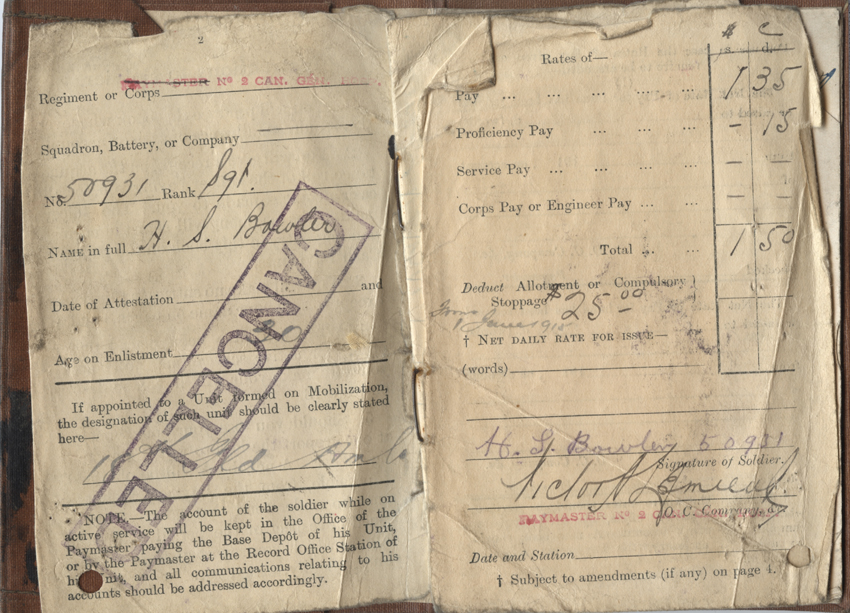 2
PAYMASTER Nº 2 CAN. GEN.
Regiment or Corps
Squadron, Battery, or Company
No. 50931 Rank Sgt.
NAME in full H. S. Bowler
Date of Attestation and
Age on Enlistment
If appointed to a Unit formed on Mobilization,
the designation of such unit should be clearly stated
here—
CANCELLED
NOTE.—The account of the soldier while on
active service will be kept in the Office of the
Paymaster paying the Base Depôt of his Unit,
or by the Paymaster at the Record Office Station of
his unit, and all communications relating to his
accounts should be addressed accordingly.
$ C
Rates of— s. d.
Pay ... ... ... ... ... 1 35
Proficiency Pay ... ... ... - 15
Service Pay ... ... ... ... - -
Corps Pay or Engineer Pay ... ... - -
Total ... ... 1 50
Deduct Allotment or Compulsory }
Stoppage $25.00
From
1 June 1915
† NET DAILY RATE FOR ISSUE—
(words)
H. S. Bowler 50931
Signature of Soldier.
O.C. Company, &c.
PAYMASTER Nº 2 CAN.
Date and Station
† Subject to amendments (if any) on page 4.